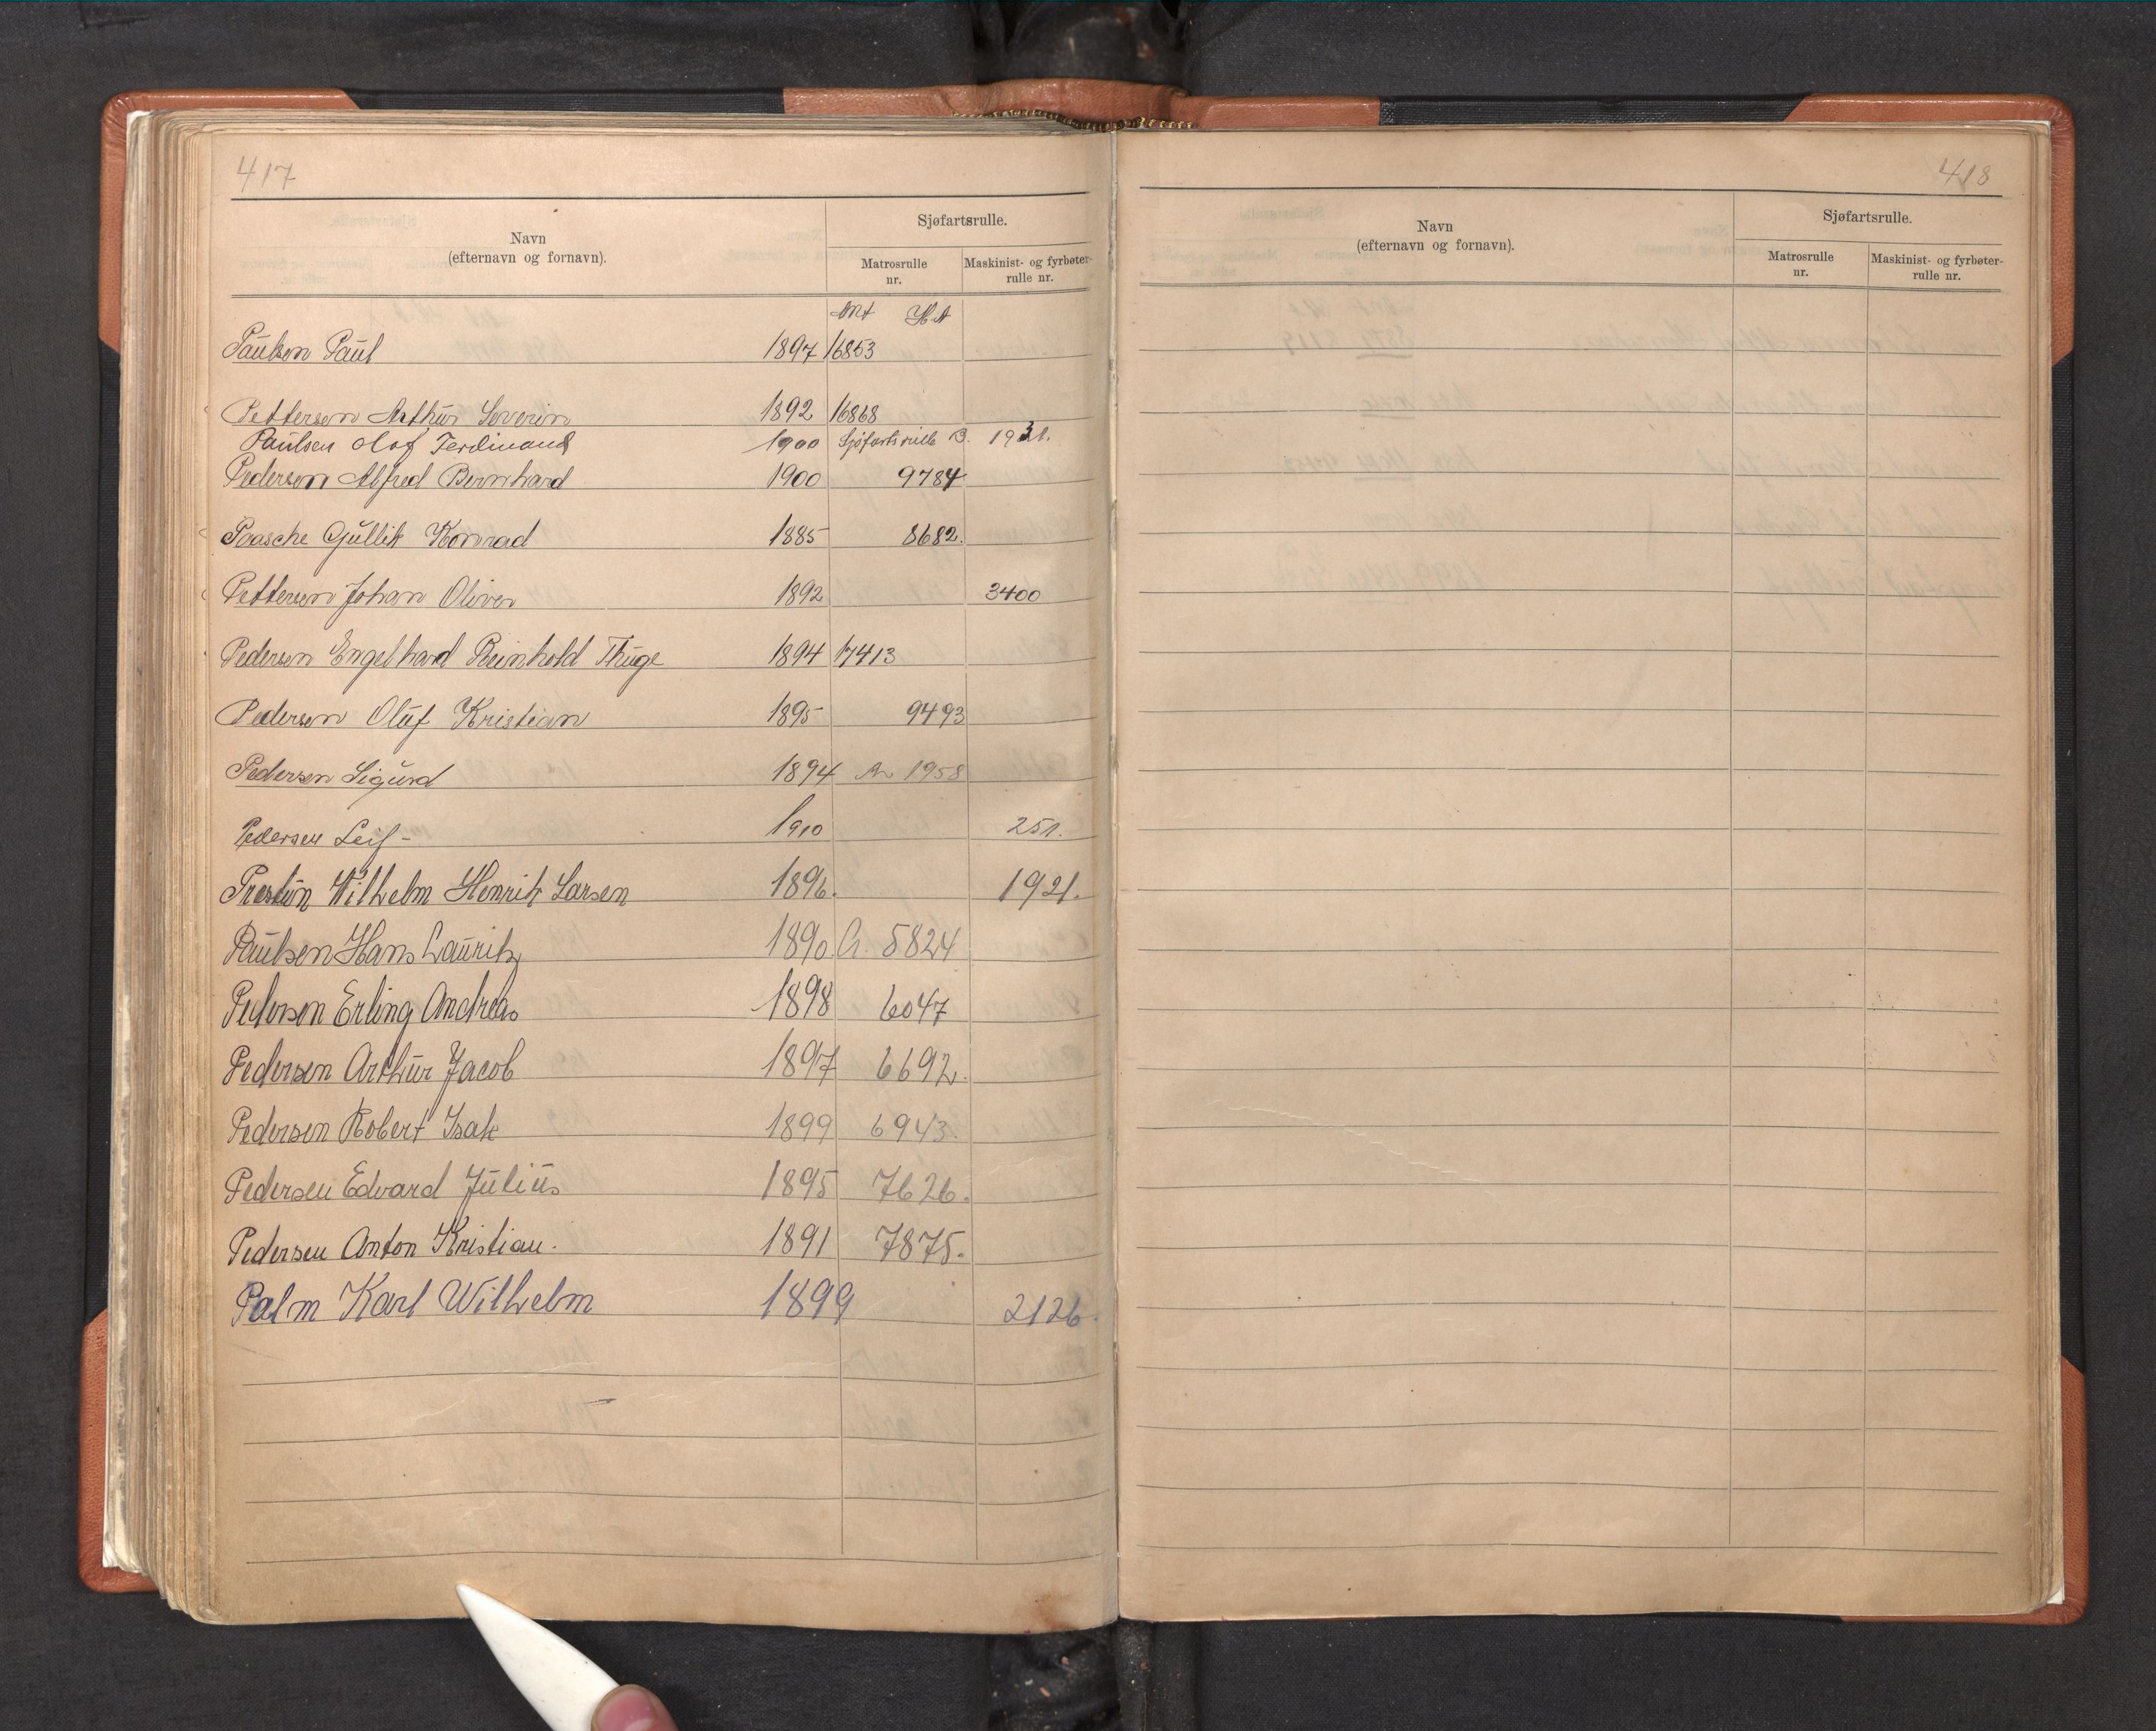 417
Navn
(efternavn og fornavn).
Sjøfartsrulle.
Matrosrulle
nr.
Maskinist- og fyrbøter-
rulle nr.
Paulsen Paul 1897 16853
Pettersen Arthur Severin 1892 16868
Paulsen Olaf Ferdinand 1900 Sjøfartsrulle B. 1931.
Pedersen Alfred Bernhard 1900 9784
Paasche Gullik Konrad 1885 8682.
Pettersen Johan Oliver 1892 3400
Pedersen Engelhard Reinhold Thuge 1894 17413
Pedersen Oluf Kristian 1895 9493
Pedersen Sigurd 1894 A. 1958
Pedersen Leif - 1910 251.
Prestun Wilhelm Henrik Larsen 1896. 1921.
Paulsen Hans Lauritz 1890 A. 5824
Pedersen Erling Andreas 1898 6047
Pedersen Arthur Jacob 1897 6692.
Pedersen Robert Isak 1899 6943.
Pedersen Edvard Julius 1895 7626.
Pedersen Anton Kristian. 1891 7875.
Palm Karl Wilhelm 1899 2126.
418
Navn
(efternavn og fornavn).
Sjøfartsrulle.
Matrosrulle
nr.
Maskinist- og fyrbøter-
rulle nr.